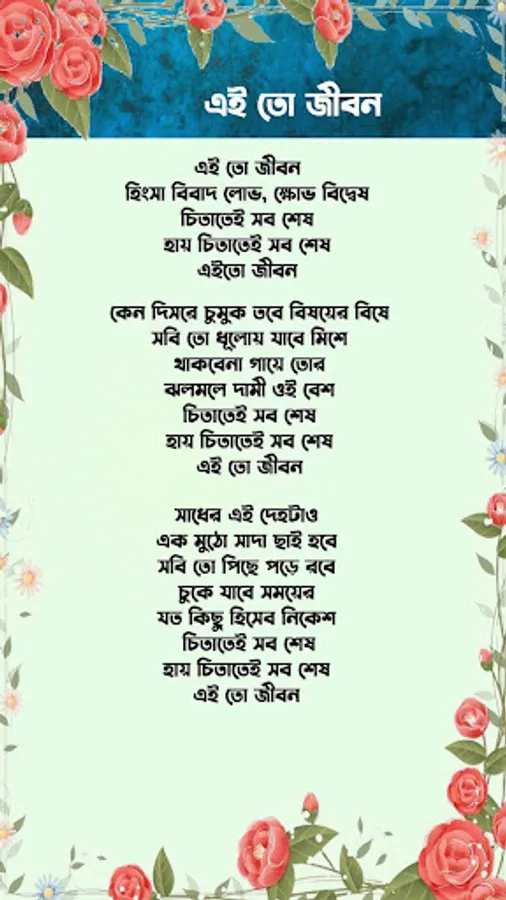 এই তো জীবন
এই তো জীবন
হিংসা বিবাদ লোভ, ক্ষোভ বিদ্বেষ
চিতাতেই সব শেষ
হায় চিতাতেই সব শেষ
এইতো জীবন
কেন দিসরে চুমুক তবে বিষয়ের বিষে
সবি তো ধূলোয় যাবে মিশে
থাকবেনা গায়ে তোর
ঝলমলে দামী ওই বেশ
চিতাতেই সব শেষ
হায় চিতাতেই সব শেষ
এই তো জীবন
সাধের এই দেহটাও
এক মুঠো সাদা ছাই হবে
সবি তো পিছে পড়ে রবে
চুকে যাবে সময়ের
যত কিছু হিসেব নিকেশ
চিতাতেই সব শেষ
হায় চিতাতেই সব শেষ
এই তো জীবন